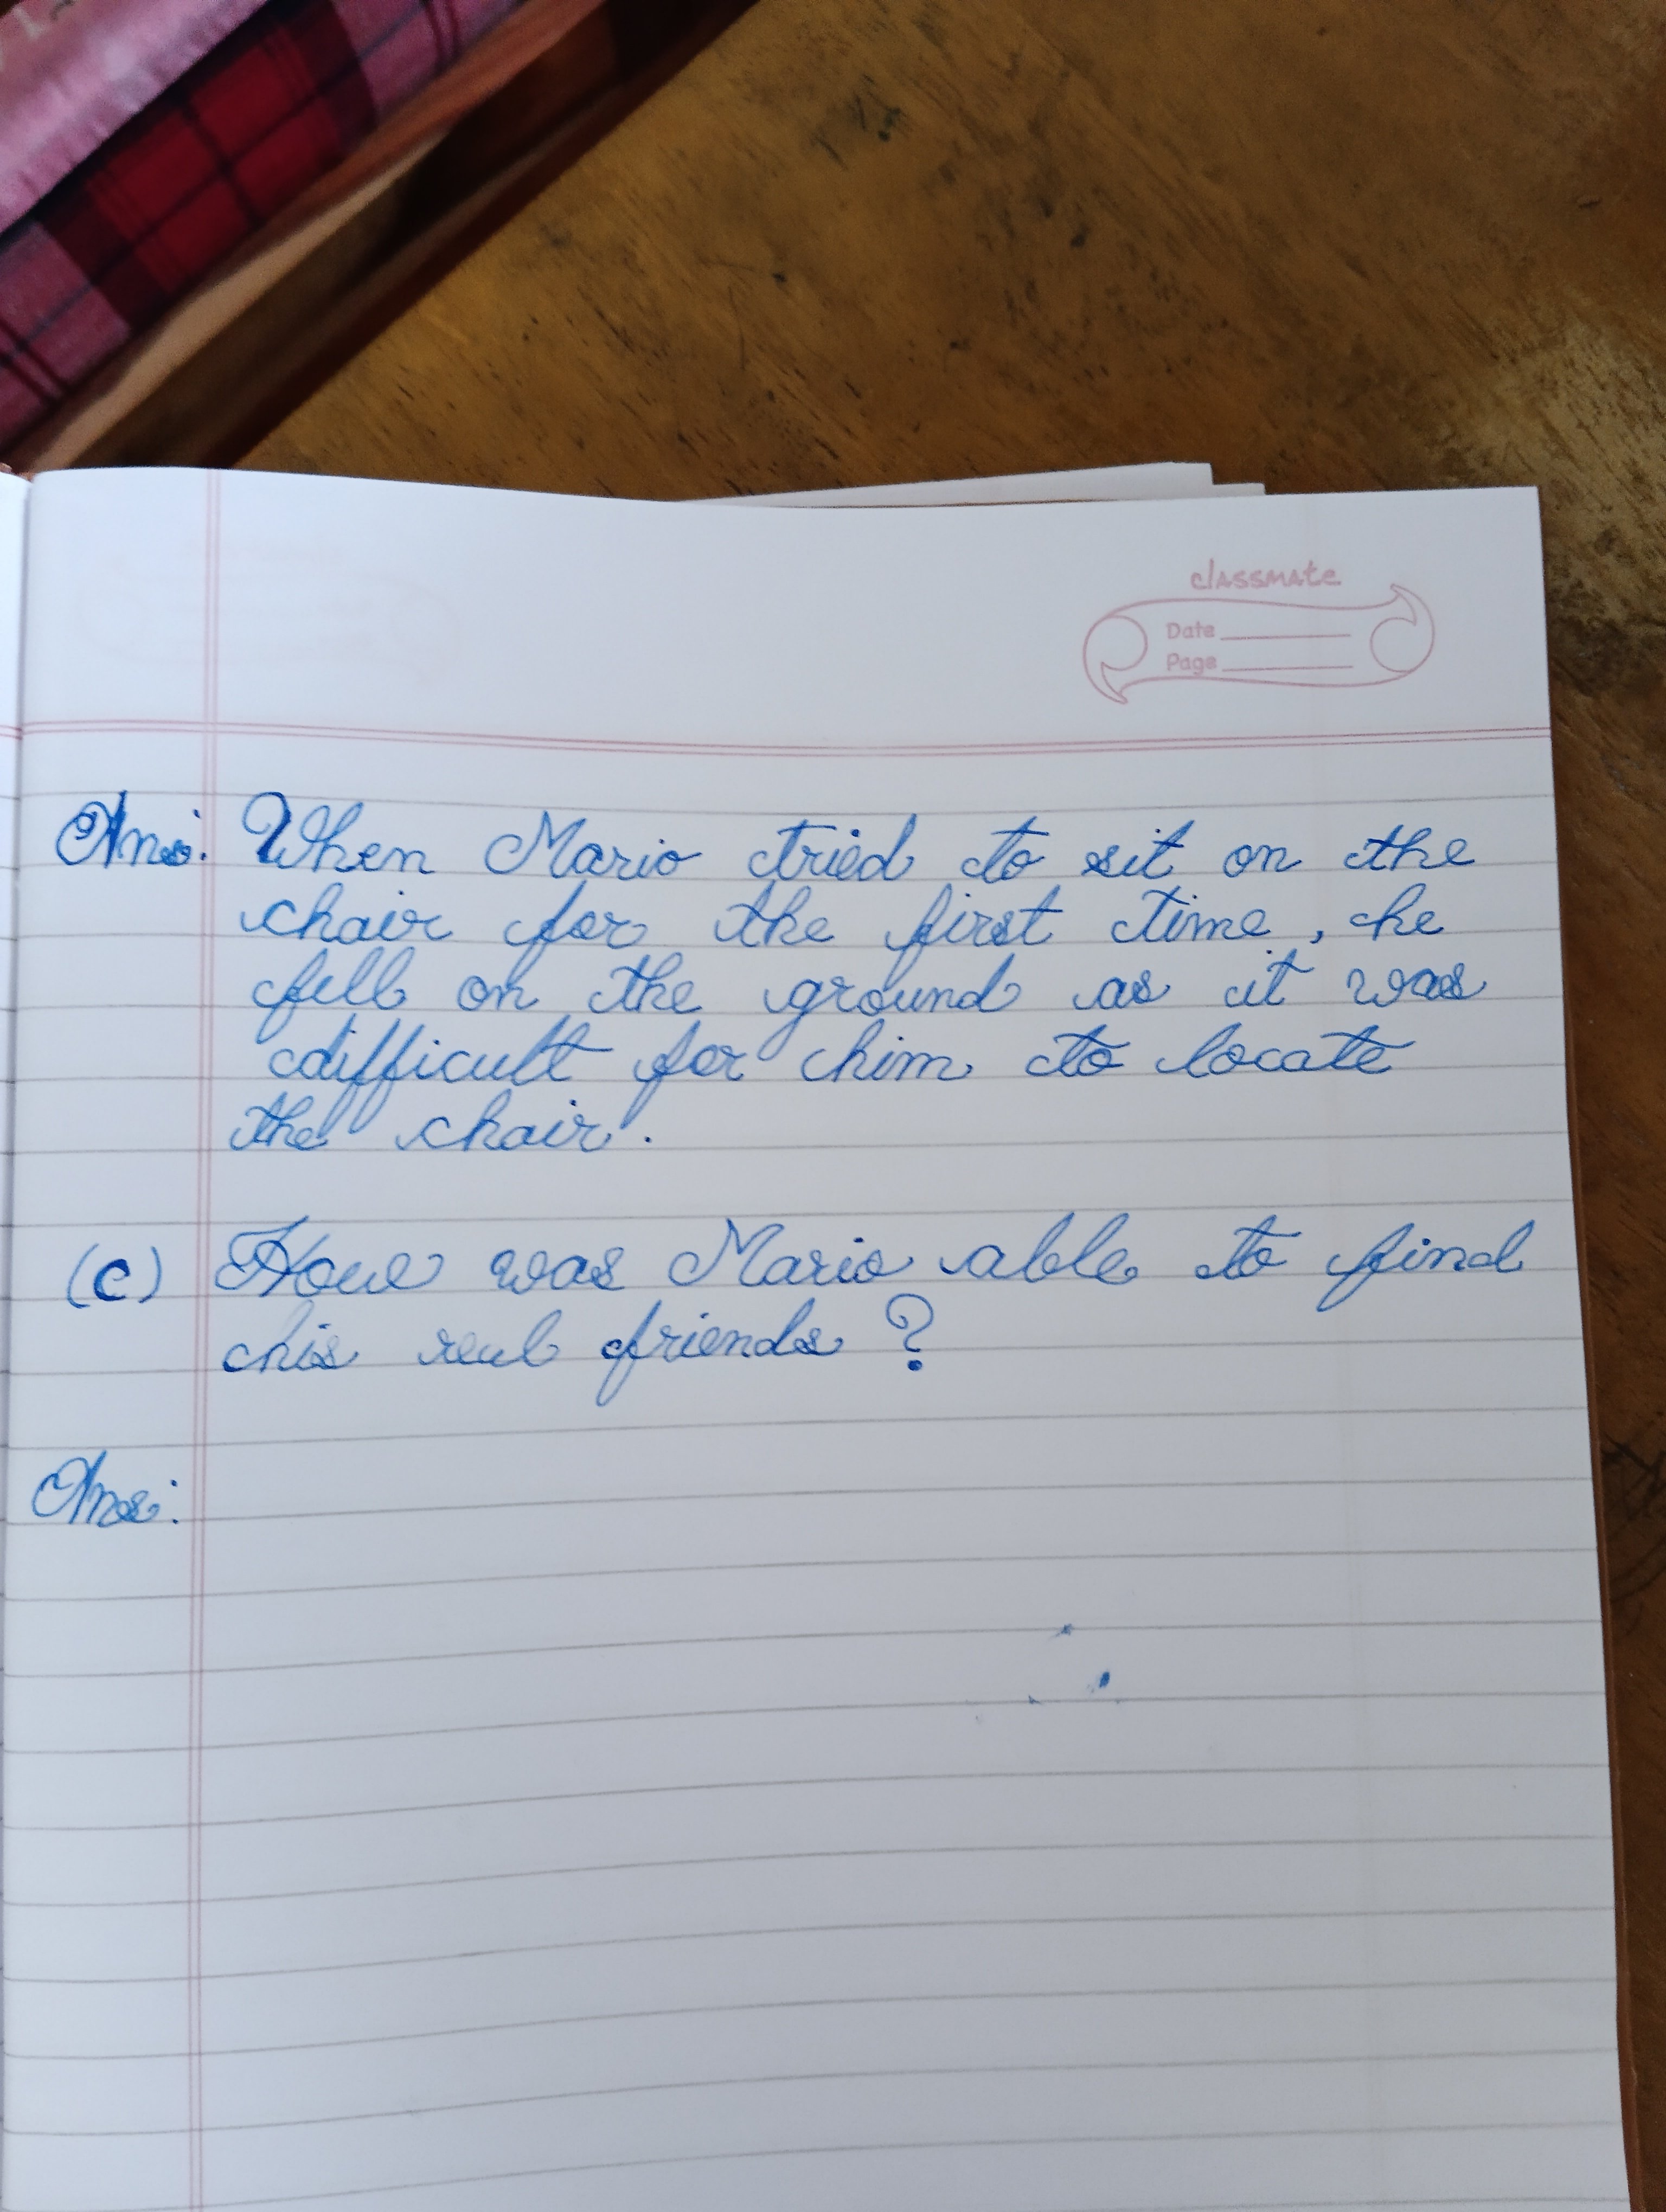 classmate
Date
Page
Ans: When Mario tried to sit on the
chair for the first time, he
fell on the ground as it was
difficult for him to locate
the chair.
(C) How was Mario able to find
his real friends ?
Ans: